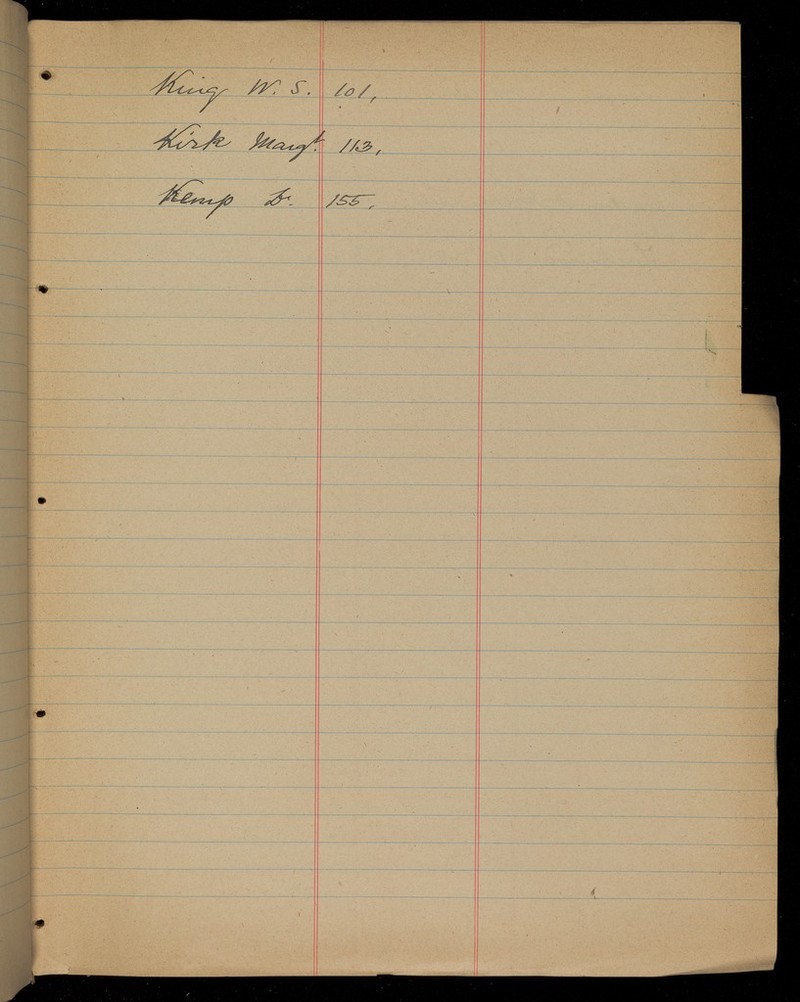 King W. S. 101,
Kirk Margt. 113,
Kemp Dr. 155,